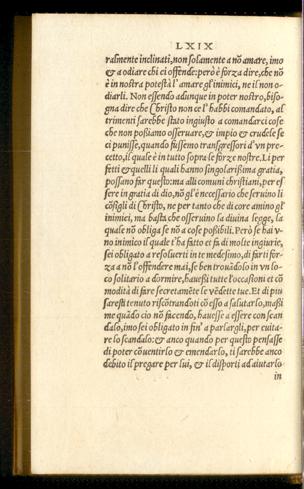 LXIX
ralmente inclinati, non solamente a nõ amare, imo
& a odiare chi ci offende: però è forza dire, che nõ
è in nostra potestà l'amare gl'inimici, ne il non o-
diarli. Non essendo adunque in poter nostro, biso-
gna dire che Christo non ce l'habbi comandato, al
trimenti sarebbe stato ingiusto a comandarci cose
che non possiamo osseruare, & impio & crudele se
ci punisse, quando fussemo transgressori d'vn pre-
cetto, il quale è in tutto sopra le forze nostre. Li per
fetti & quelli li quali hanno singolarissima gratia,
possano far questo: ma alli comuni christiani, per es
sere in gratia di dio, nõ gl'è necessario che seruino li
cõsigli di Christo, ne per tanto che di core amino gl'
inimici, ma basta che osseruino la diuina legge, la
quale nõ obliga se nõ a cose possibili. Però se hai v-
no inimico il quale t'ha fatto et fa di molte ingiurie,
sei obligato a resoluerti in te medesimo, di far ti for-
za a nõ l'offendere mai, se ben trouãdolo in vn lo-
co solitario a dormire, hauessi tutte l'occasioni et cõ
modità di fare secretamẽte le vẽdette tue. Et di piu
saresti tenuto riscõtrandoti cõ esso a salutarlo, massi
me quãdo ciò nõ facendo, hauesse a essere con scan
dalo, imo sei obligato in fin' a parlargli, per euita-
re lo scandalo: & anco quando per questo pensasse
di poter cõuentirlo & emendarlo, ti sarebbe anco
debito il pregare per lui, & il disporti ad aiutarlo
in